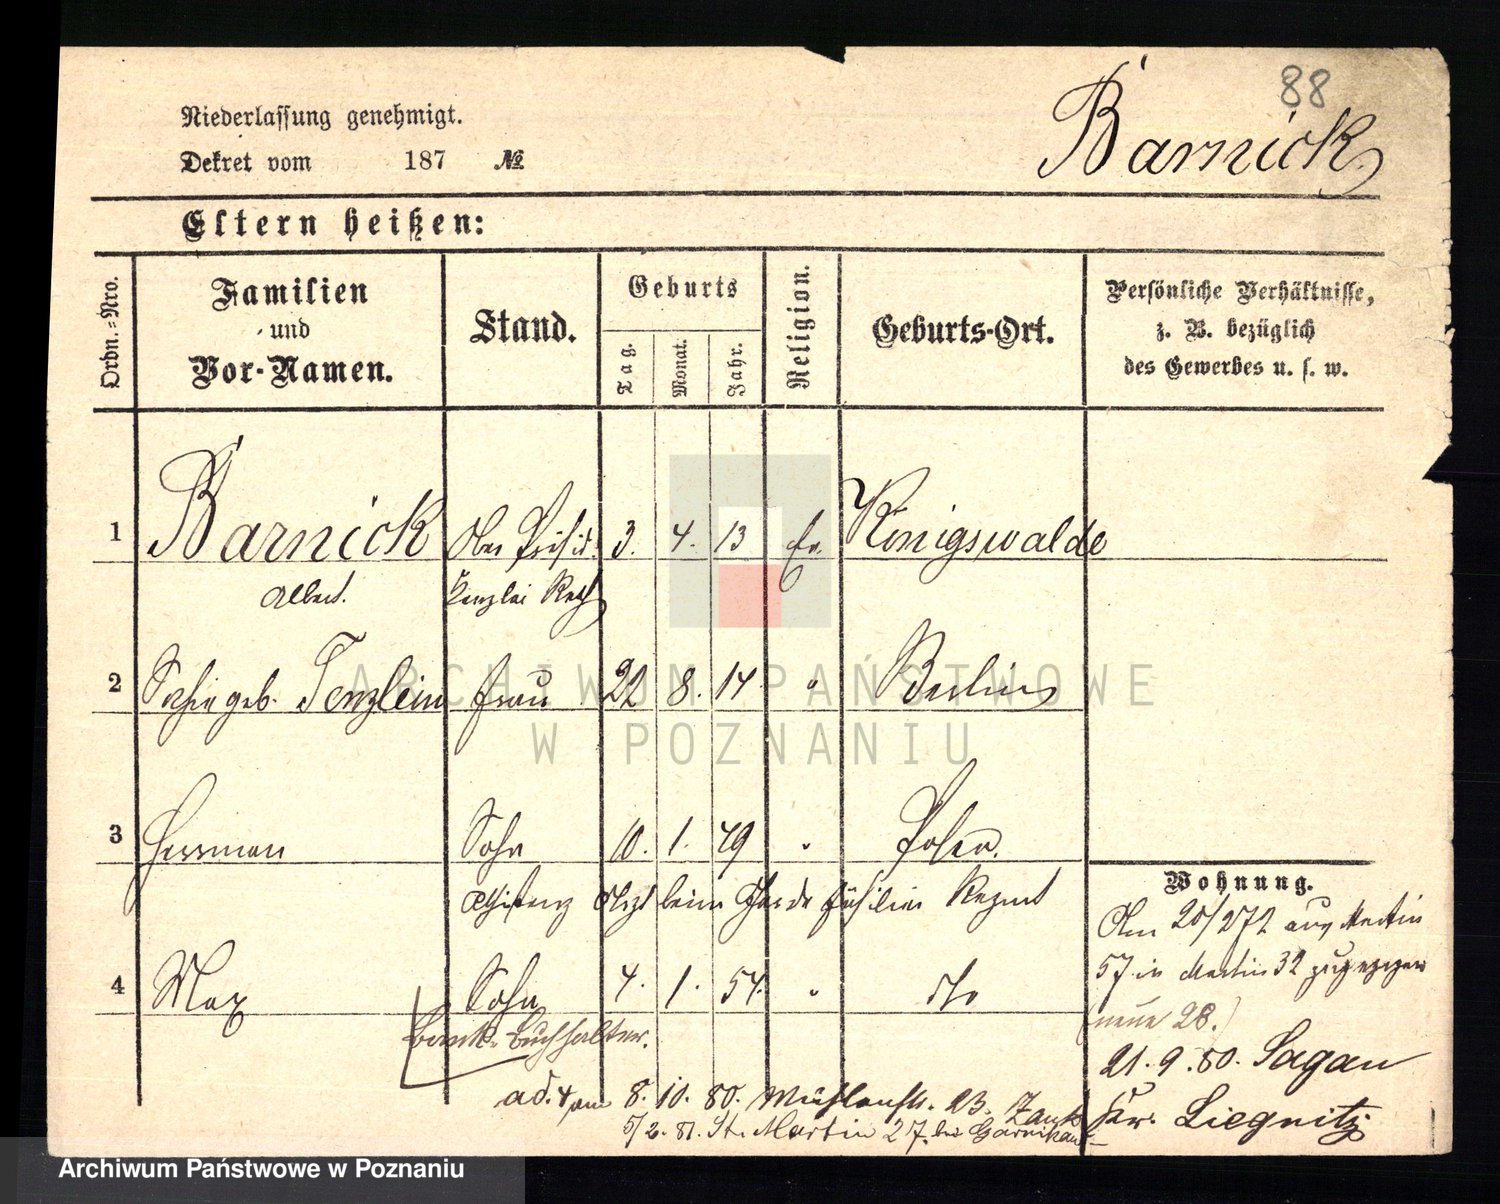 88
Barnick
Niederlassung genehmigt.
Dekret vom 187 №
Eltern heißen:
Ordn.-Nro.
Familien und Vor-Namen.
Stand.
Geburts
Tag.
Monat.
Jahr.
Religion.
Geburts-Ort.
Persönliche Verhältnisse, z. B. bezüglich des Gewerbes u. s. w.
1 Barnick Ober Präsid. 3. 4. 13 Ev. Königswalde
Albert. Kanzlei Rath
2 geb. Tenzlein Frau 22 8. 14 " Berlin
3 Herrman Sohn 10. 1. 49 " Posen.
Assistenz Arzt beim Garde Füsilier Regmt
4 Max Sohn 4. 1. 54. " dto
Bank-Buchhalter.
ad. 4 am 8. 10. 80. Mühlenstr. 23.
5/2. 81. St. Martin 27. bei
Wohnung.
Am 20/2 72 aus Martin
57 in Martin 32 gezogen
(neue 28.)
21. 9. 80. Sagan
Kr. Liegnitz
ARCHIWUM PAŃSTWOWE
W POZNANIU
Archiwum Państwowe w Poznaniu